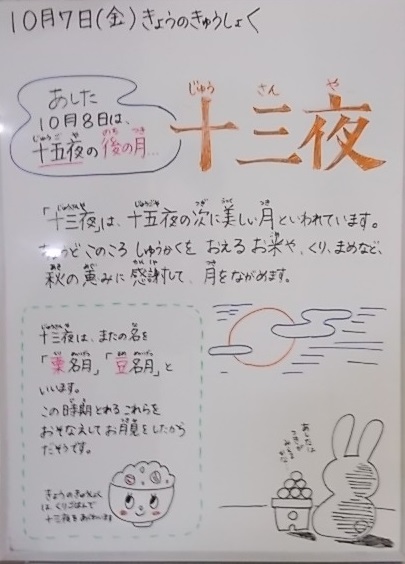 10月7日(金)きょうのきゅうしょく
あした
10月8日は、
十五夜の後の月…
十三夜
「十三夜」は、十五夜の次に美しい月といわれています。
ちょうどこのころ しゅうかくを おえる お米や、くり、まめなど、
秋の恵みに感謝して、月をながめます。
十三夜は、またの名を
「栗名月」「豆名月」と
いいます。
この時期とれるこれらを
おそなえしてお月見をしたから
だそうです。
きょうのきゅうしょく
は、くりごはんで
十三夜を
あしたは
つきが